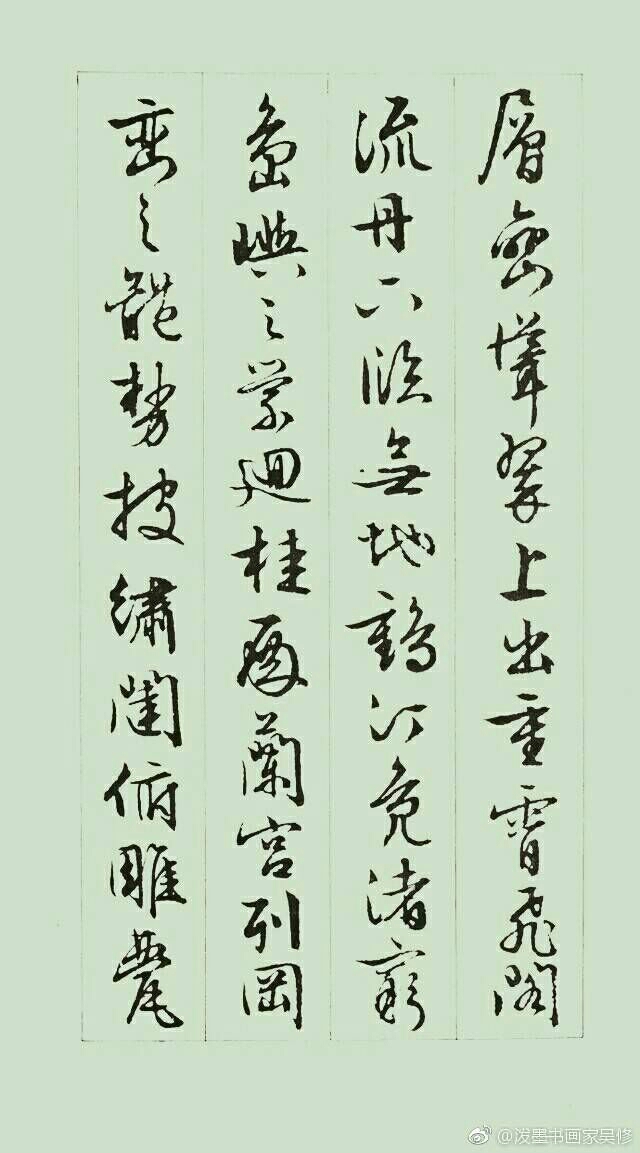 層巒聳翠上出重霄飛閣
流丹下臨無地鶴汀鳧渚窮
島嶼之縈迴桂殿蘭宮列岡
巒之體勢披繡闥俯雕甍
@泼墨书画家吴修